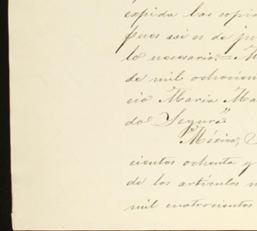 expida las copia
pues así es de ju
lo necesario.= M
de mil ochocien
cio Maria Ma
do Segura
Mexico,
cientos ochenta y
de los artículos m
mil cuatrocientos